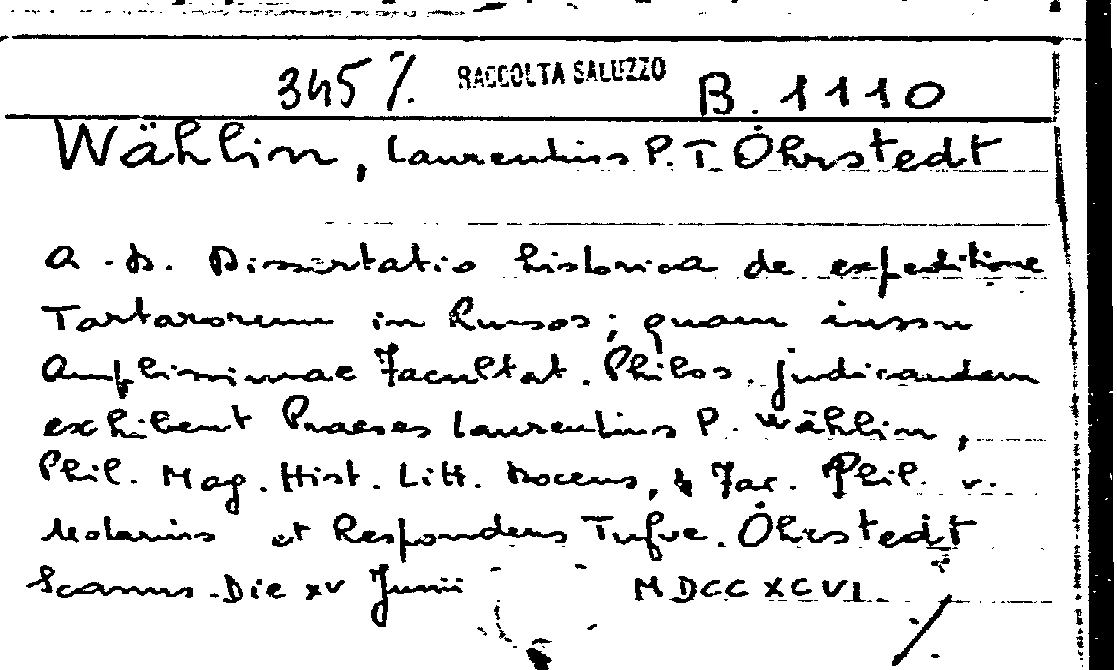 345 /. RACCOLTA SALUZZO B. 1110
Wählin, Laurentius P. T. Öhrstedt
A. D. Dissertatio historica de expeditione
Tartarorum in Russos; quam iussu
Amplissimae Facultat. Philos. judicandam
exhibent Praeses Laurentius P. Wählin,
Phil. Mag. Hist. Litt. Docens, & Fac. Phil. v.
Notarius et Respondens Tufve. Öhrstedt
Scanus. Die XV Junii MDCCXCVI.